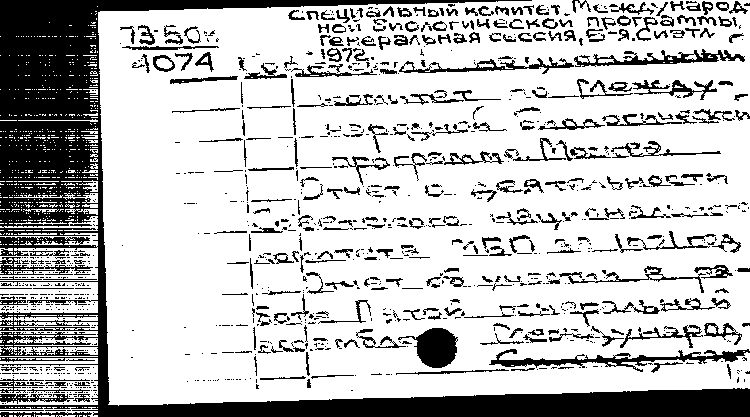 Специальный комитет Международ-
ной биологической программы.
Генеральная сессия, 5-я. Сиэтл
1972.
73-50
4074
Советский национальный
комитет по Между-
народной биологической
программе. Москва.
Отчет о деятельности
Советского национального
комитета МБП за 1971 год
Отчет об участии в ра-
боте Пятой генеральной
ассамблеи Международ-